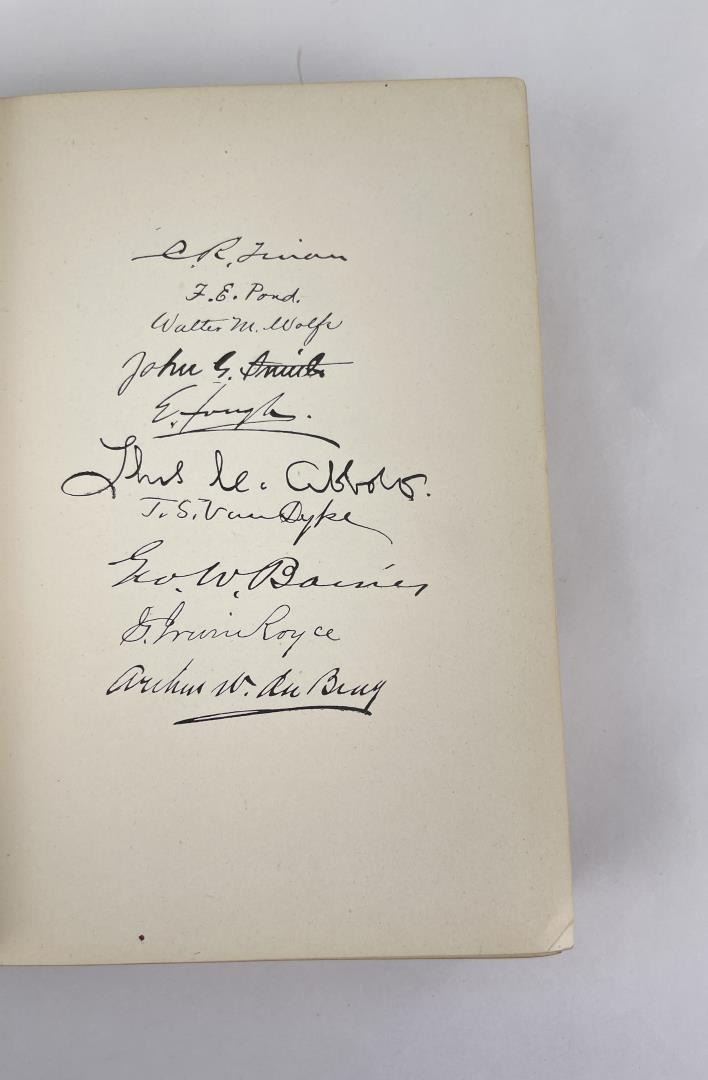 C. R.
F. E. Pond.
Walter M. Wolfe
John G. Smith
E. Hough.
Chas. W. Abbott.
T. S. Van Dyke
Geo. W. Baines
G. Irwin Royce
Arthur W. du Bray